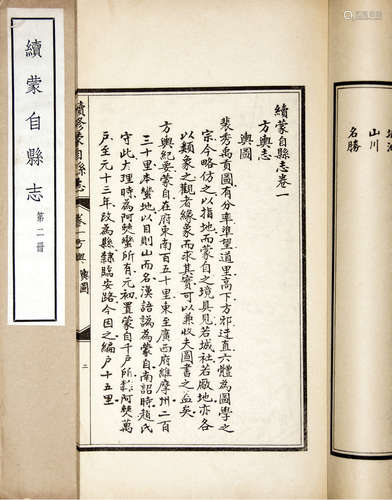 山川
名勝
續蒙自縣志卷一
方輿志
輿圖
裴秀禹貢圖有分率準望道里高下方邪迂直六體為圖學之
宗今略仿之以指地而蒙自之境具見若城社若廠地亦各
以類象之觀者緣象而求其實可以兼收夫圖書之益矣
方輿紀要蒙自在府東南百五十里東至廣西府維摩州二百
三十里本蠻地以目則山而名漢語譌為蒙自南詔時趙氏
守此大理時為阿僰蠻所有元初置蒙自千戶所隸阿僰萬
戶至元十三年改為縣隸臨安路今因之編戶十五里
續修蒙自縣志 卷一方輿 輿圖 二
續蒙自縣志 第二冊